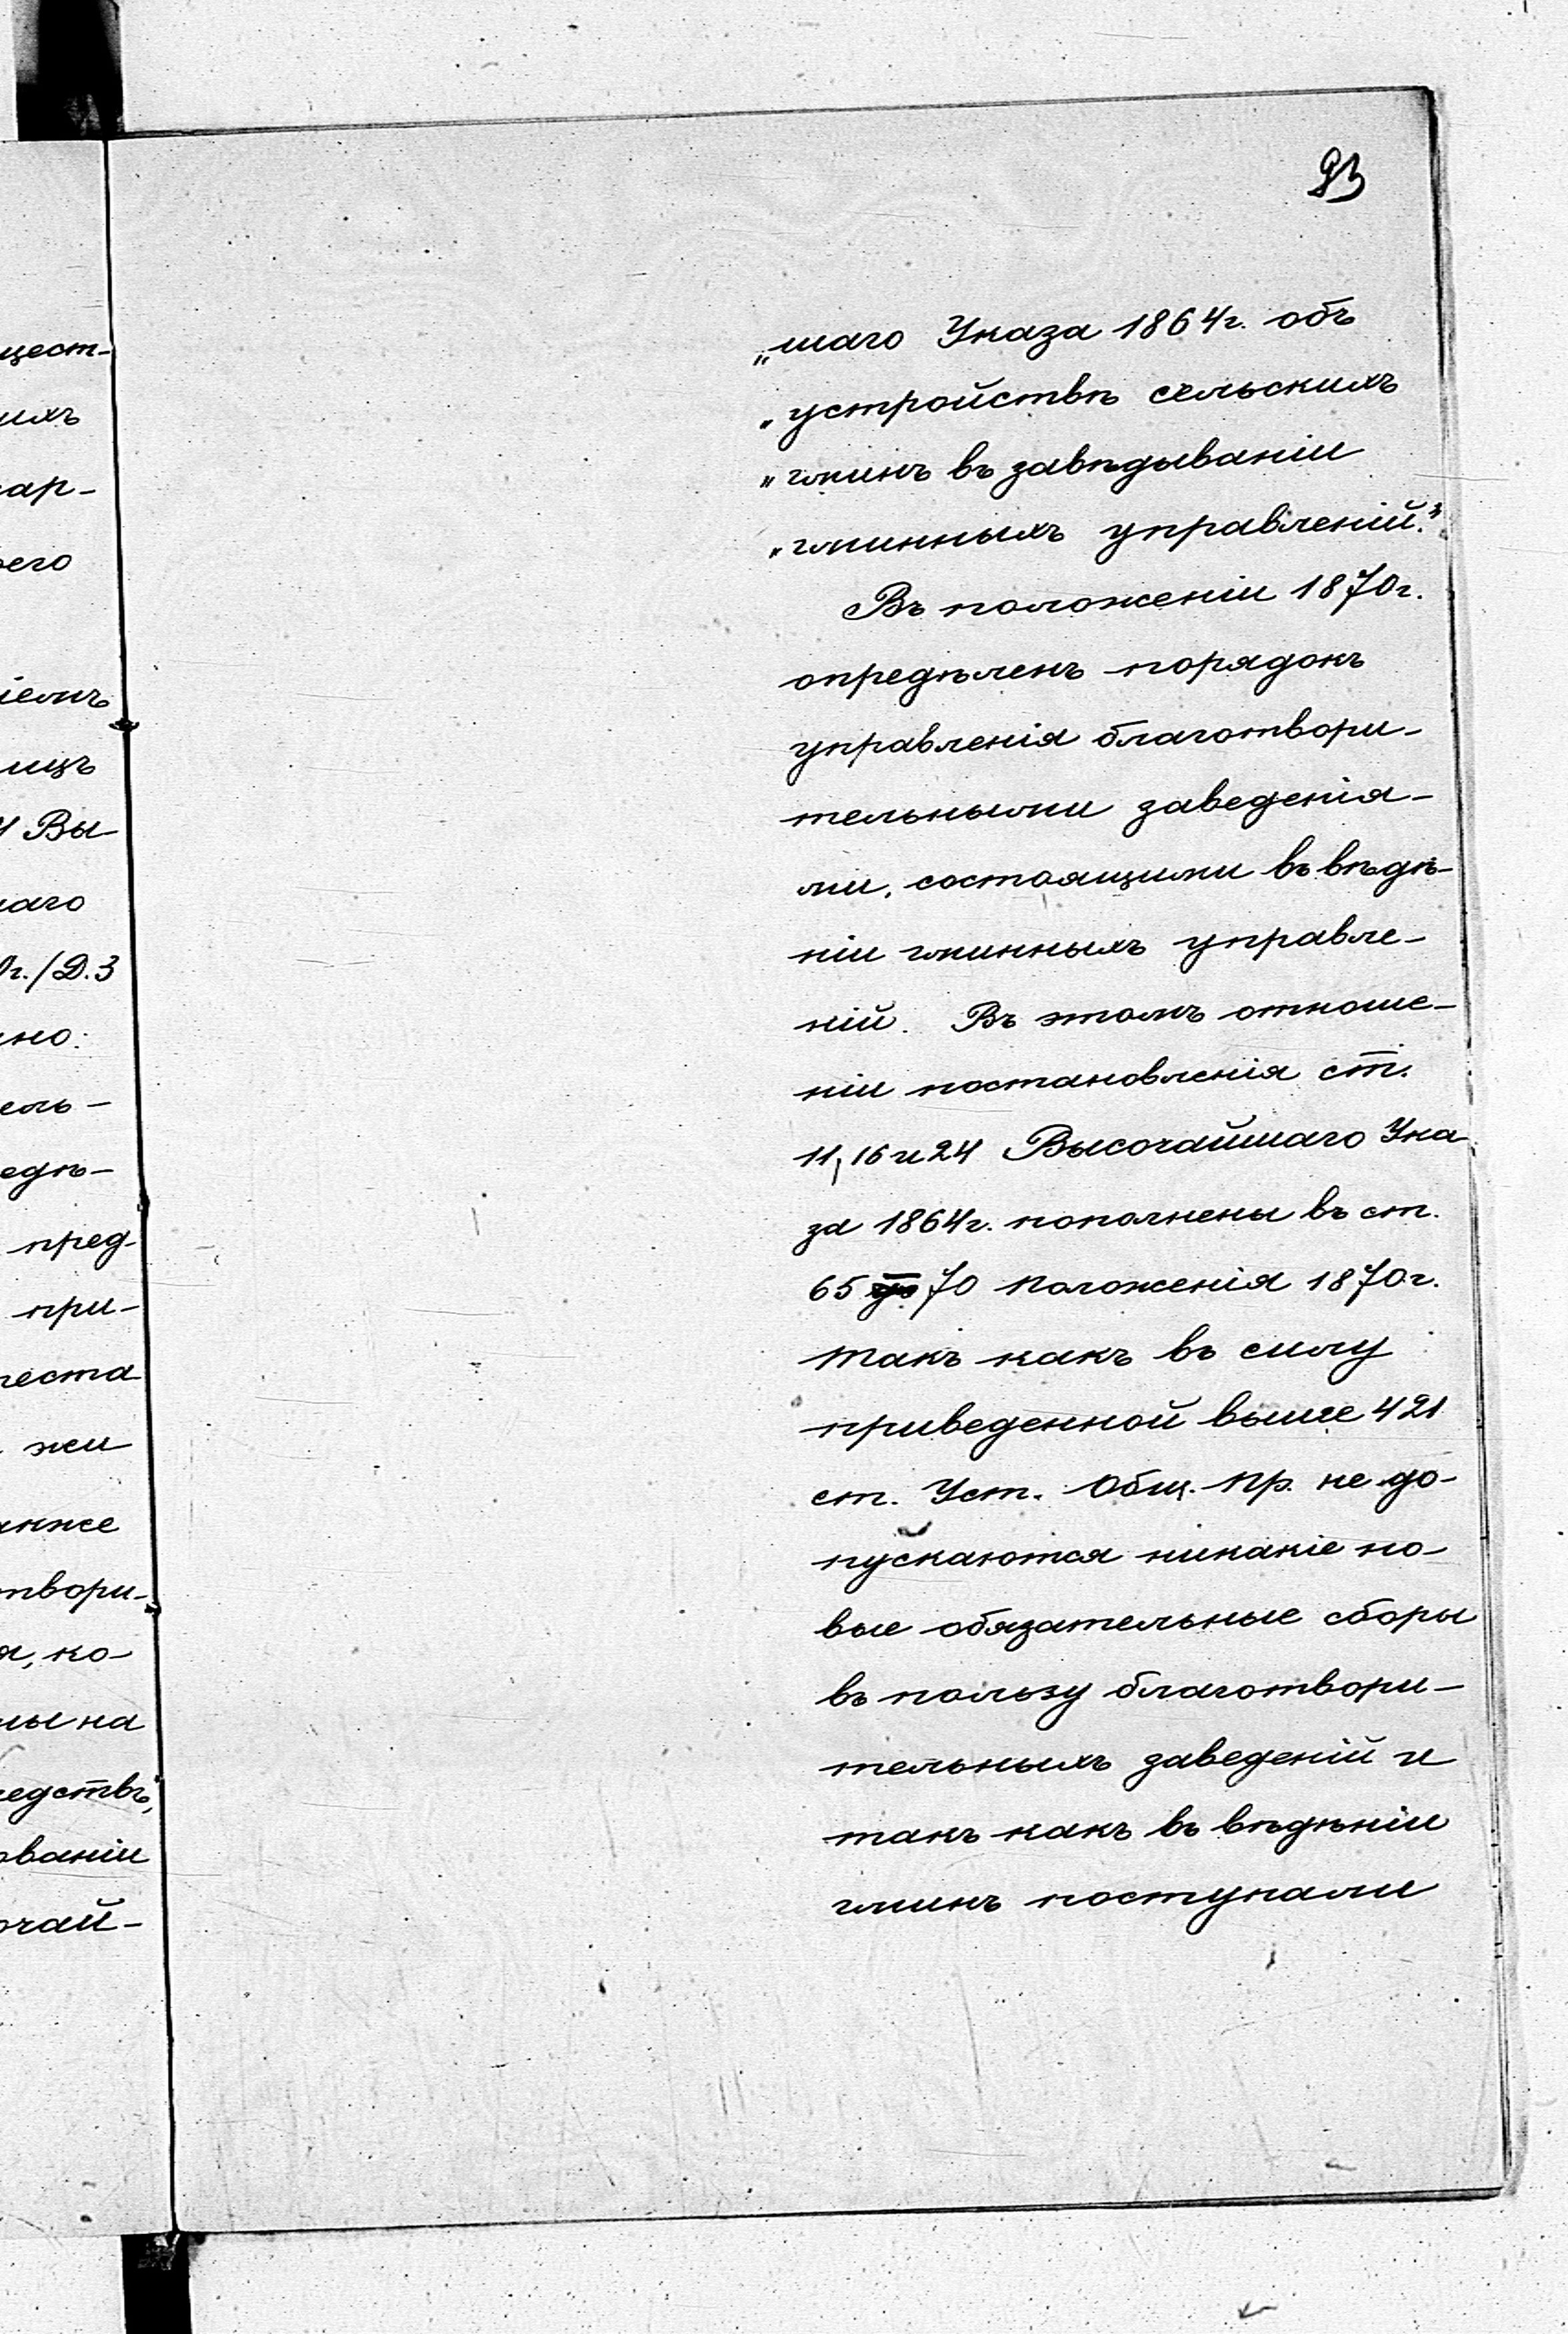 93
„шаго Указа 1864г. объ
„устройствѣ сельскихъ
„гминъ въ завѣдываніи
„гминныхъ управленій."
Въ положеніи 1870г.
опредѣленъ порядокъ
управленія благотвори-
тельными заведенія-
ми, состоящими въ вѣдѣ-
ніи гминныхъ управле-
ній. Въ этомъ отноше-
ніи постановленія ст.
11, 16 и 24 Высочайшаго Ука
за 1864г. пополнены въ ст.
65 70 Положенія 1870г.
Такъ какъ въ силу
приведенной выше 421
ст. Уст. Общ. Пр. не до-
пускаются никакіе но-
вые обязательные сборы
въ пользу благотвори-
тельныхъ заведеній и
такъ какъ въ вѣдѣніи
гминъ поступали